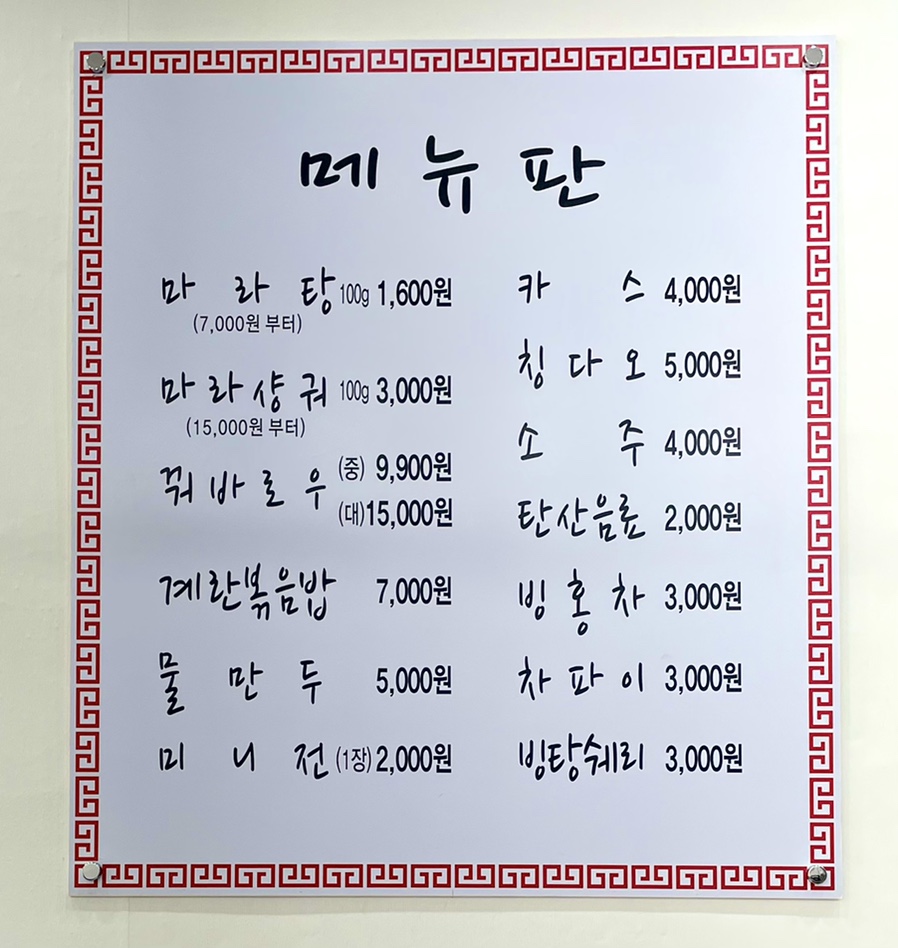 메뉴판
마라탕 100g 1,600원
(7,000원 부터)
마라샹궈 100g 3,000원
(15,000원 부터)
꿔바로우 (중) 9,900원
(대) 15,000원
계란볶음밥 7,000원
물만두 5,000원
미니전 (1장) 2,000원
카스 4,000원
칭다오 5,000원
소주 4,000원
탄산음료 2,000원
빙홍차 3,000원
차파이 3,000원
빙탕쉐리 3,000원